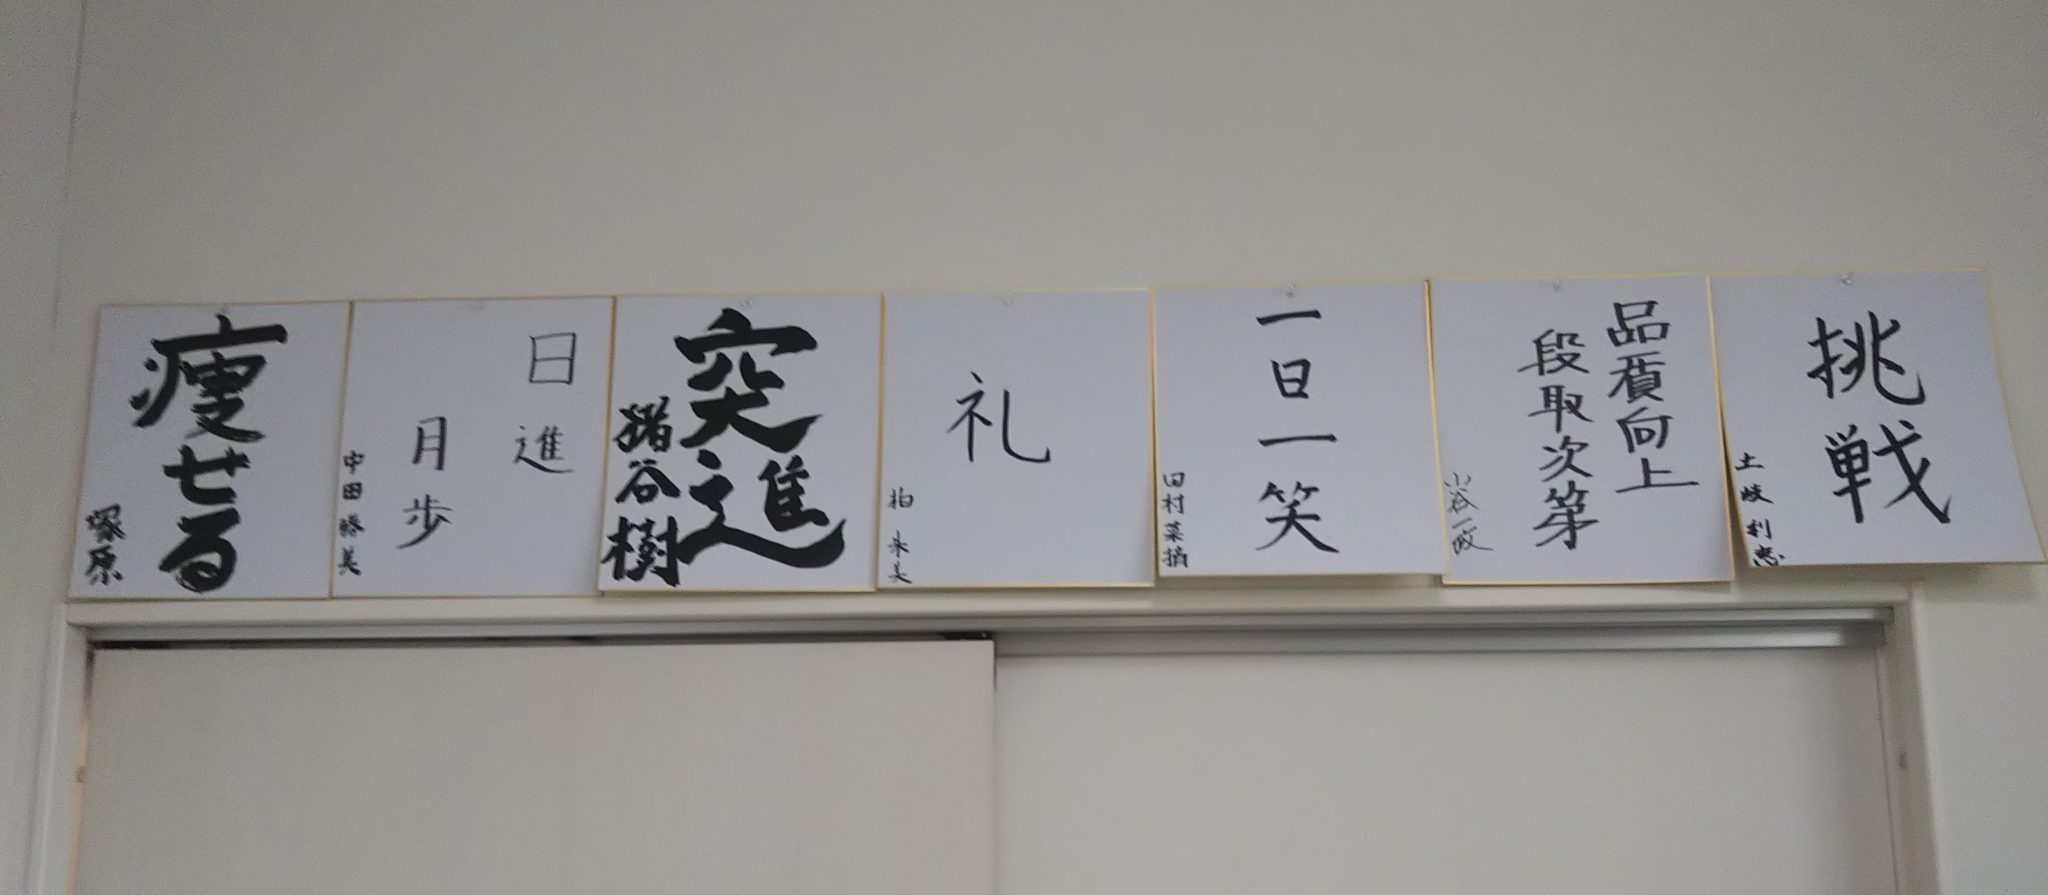 挑戦
土岐利忠
品質向上
段取次第
一日一笑
田村菜摘
礼
柏朱美
突進
猪谷樹
日進
月歩
中田勝美
痩せる
塚原